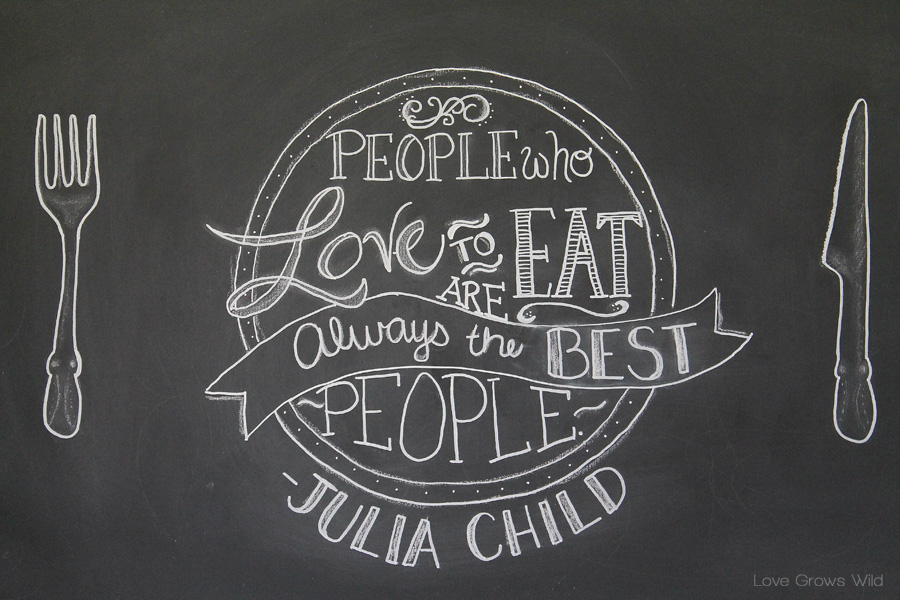 PEOPLE who
Love TO EAT
ARE
always the BEST
~PEOPLE~
-JULIA CHILD
Love Grows Wild